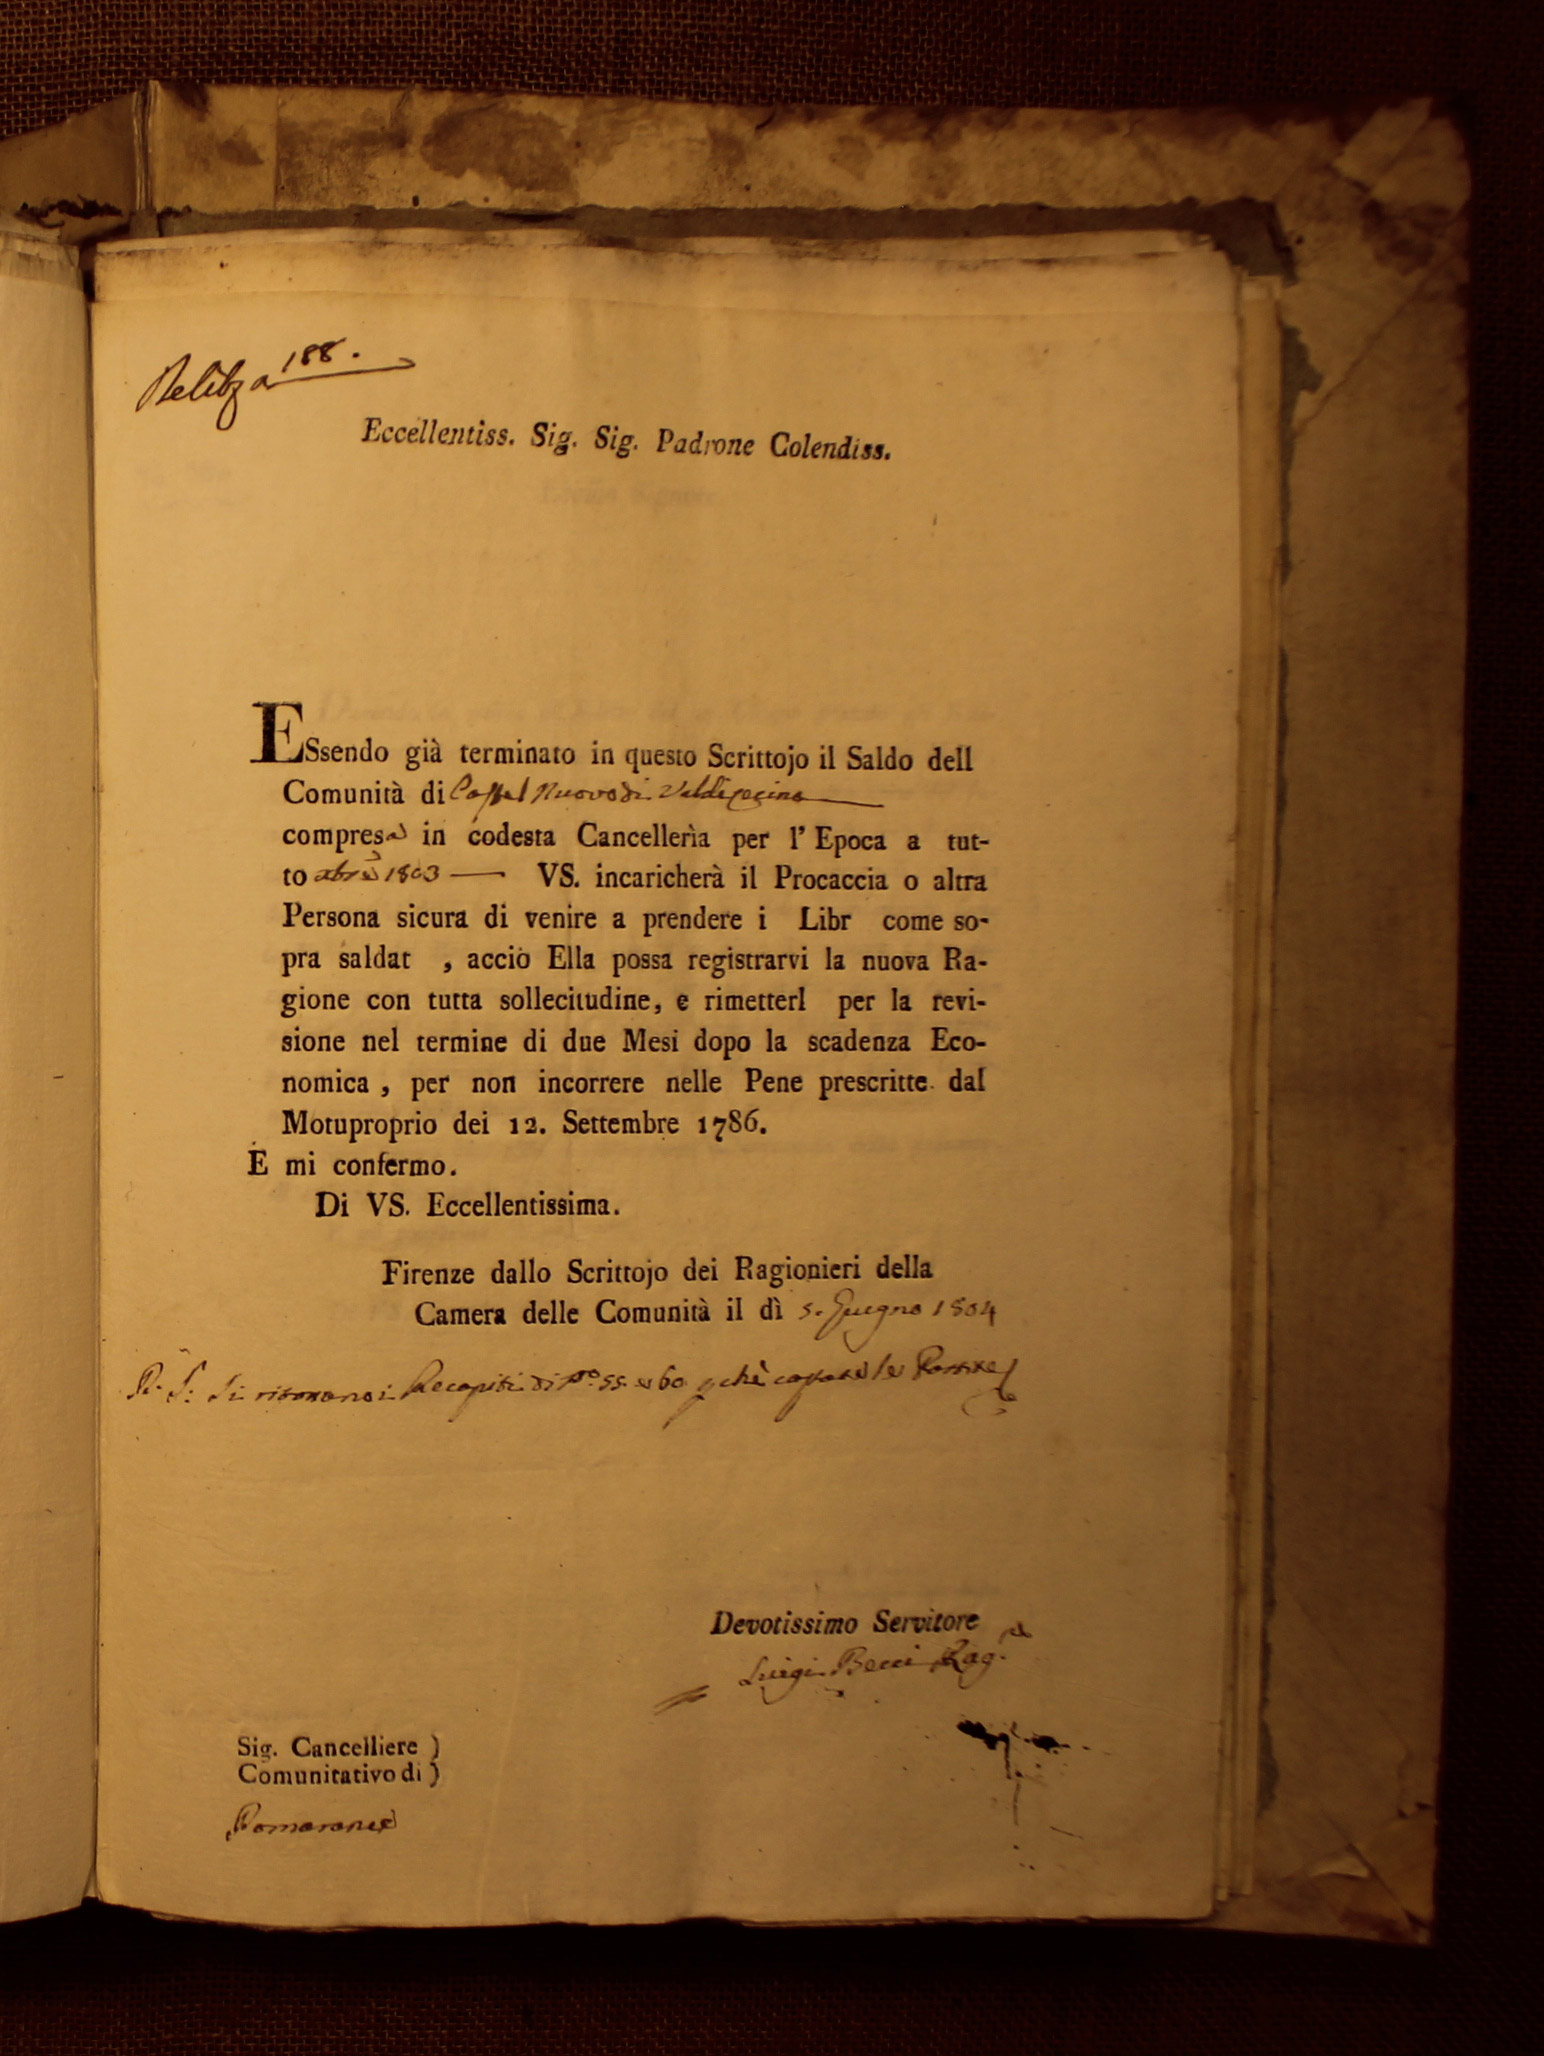 188.
Eccellentiss. Sig. Sig. Padrone Colendiss.
ESsendo già terminato in questo Scrittojo il Saldo dell
Comunità di Castel Nuovo di Valdicecina
compresa in codesta Cancellerìa per l' Epoca a tut-
to Xbre 1803 — VS. incaricherà il Procaccia o altra
Persona sicura di venire a prendere i Libr come so-
pra saldat , acciò Ella possa registrarvi la nuova Ra-
gione con tutta sollecitudine, e rimetterl per la revi-
sione nel termine di due Mesi dopo la scadenza Eco-
nomica, per non incorrere nelle Pene prescritte dal
Motuproprio dei 12. Settembre 1786.
E mi confermo.
Di VS. Eccellentissima.
Firenze dallo Scrittojo dei Ragionieri della
Camera delle Comunità il dì 5. Giugno 1804
P. S: Si ritornano i Recapiti di 55 e 60 le Partite
Devotissimo Servitore
Luigi Rag.
Sig. Cancelliere )
Comunitativo di )
Pomarance